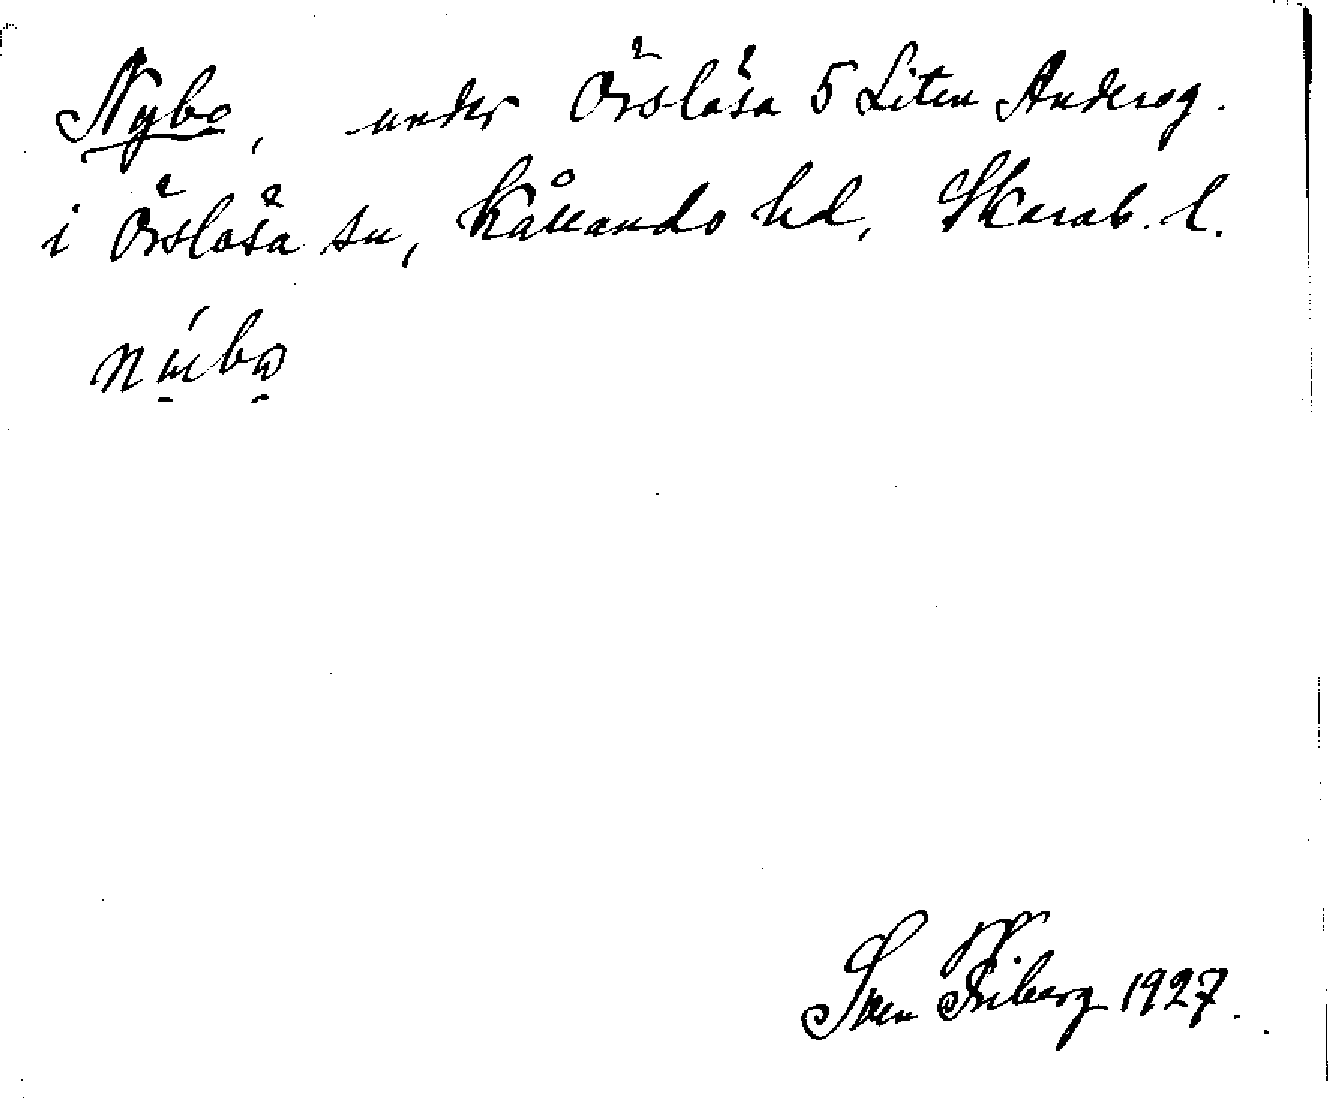 Nybo, under Örslösa 5 Liten Andersg.
i Örslösa sn, Kållands hd, Skarab. l.
Sven Friberg 1927.